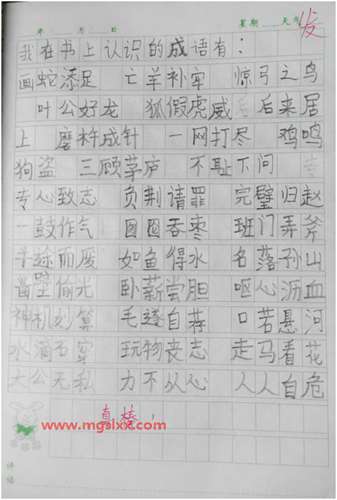 年 月 日 星期 天气
我在书上认识的成语有：
画蛇添足 亡羊补牢 惊弓之鸟
叶公好龙 狐假虎威 后来居
上 磨杵成针 一网打尽 鸡鸣
狗盗 三顾茅庐 不耻下问
专心致志 负荆请罪 完璧归赵
一鼓作气 囫囵吞枣 班门弄斧
半途而废 如鱼得水 名落孙山
凿壁偷光 卧薪尝胆 呕心沥血
神机妙算 毛遂自荐 口若悬河
水滴石穿 玩物丧志 走马看花
大公无私 力不从心 人人自危
真棒！
www.mgslxx.com